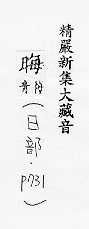 精嚴新集大藏音
晦音(日部.p731)